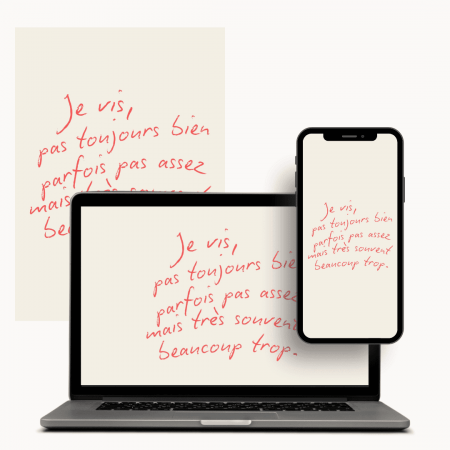 Je vis,
pas toujours bien
parfois pas assez
mais très souvent
bea
Je vis,
pas toujours bie
parfois pas assez
mais très souvent
beaucoup trop.
Je vis,
pas toujours bien
parfois pas assez
mais très souvent
beaucoup trop.